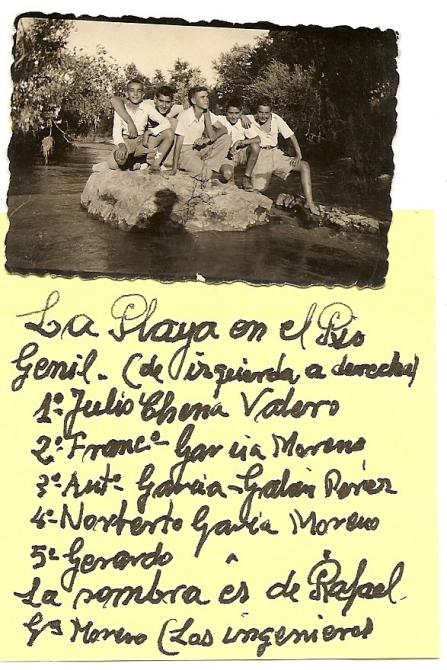 La Playa en el Rio
Genil. (de izquierda a derecha)
1º Julio Chena Valero
2º Francº García Moreno
3º Antº García-Galán Pérez
4º Norberto García Moreno
5º Gerardo " "
La sombra es de Rafael
Gª Moreno (Los ingenieros